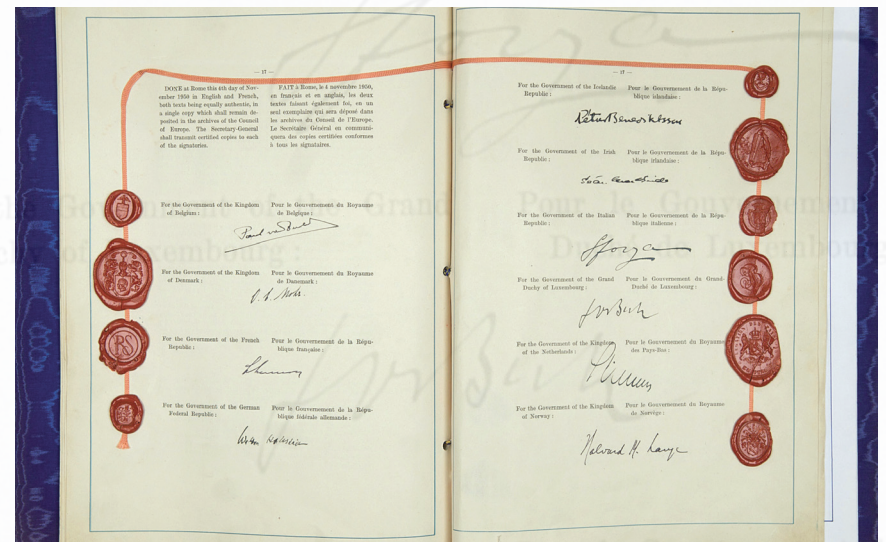 — 17 —
DONE at Rome this 4th day of Nov-
ember 1950 in English and French,
both texts being equally authentic, in
a single copy which shall remain de-
posited in the archives of the Council
of Europe. The Secretary-General
shall transmit certified copies to each
of the signatories.
FAIT à Rome, le 4 novembre 1950,
en français et en anglais, les deux
textes faisant également foi, en un
seul exemplaire qui sera déposé dans
les archives du Conseil de l'Europe.
Le Secrétaire Général en communi-
quera des copies certifiées conformes
à tous les signataires.
For the Government of the Kingdom
of Belgium :
Pour le Gouvernement du Royaume
de Belgique :
For the Government of the Kingdom
of Denmark :
Pour le Gouvernement du Royaume
de Danemark :
For the Government of the French
Republic :
Pour le Gouvernement de la Répu-
blique française :
RS
For the Government of the German
Federal Republic :
Pour le Gouvernement de la Répu-
blique fédérale allemande :
— 17 —
For the Government of the Icelandic
Republic :
Pour le Gouvernement de la Répu-
blique islandaise :
For the Government of the Irish
Republic :
Pour le Gouvernement de la Répu-
blique irlandaise :
For the Government of the Italian
Republic :
Pour le Gouvernement de la Répu-
blique italienne :
Sforza
For the Government of the Grand
Duchy of Luxembourg :
Pour le Gouvernement du Grand-
Duché de Luxembourg :
For the Government of the Kingdom
of the Netherlands :
Pour le Gouvernement du Royaume
des Pays-Bas :
For the Government of the Kingdom
of Norway :
Pour le Gouvernement du Royaume
de Norvège :
Halvard M. Lange